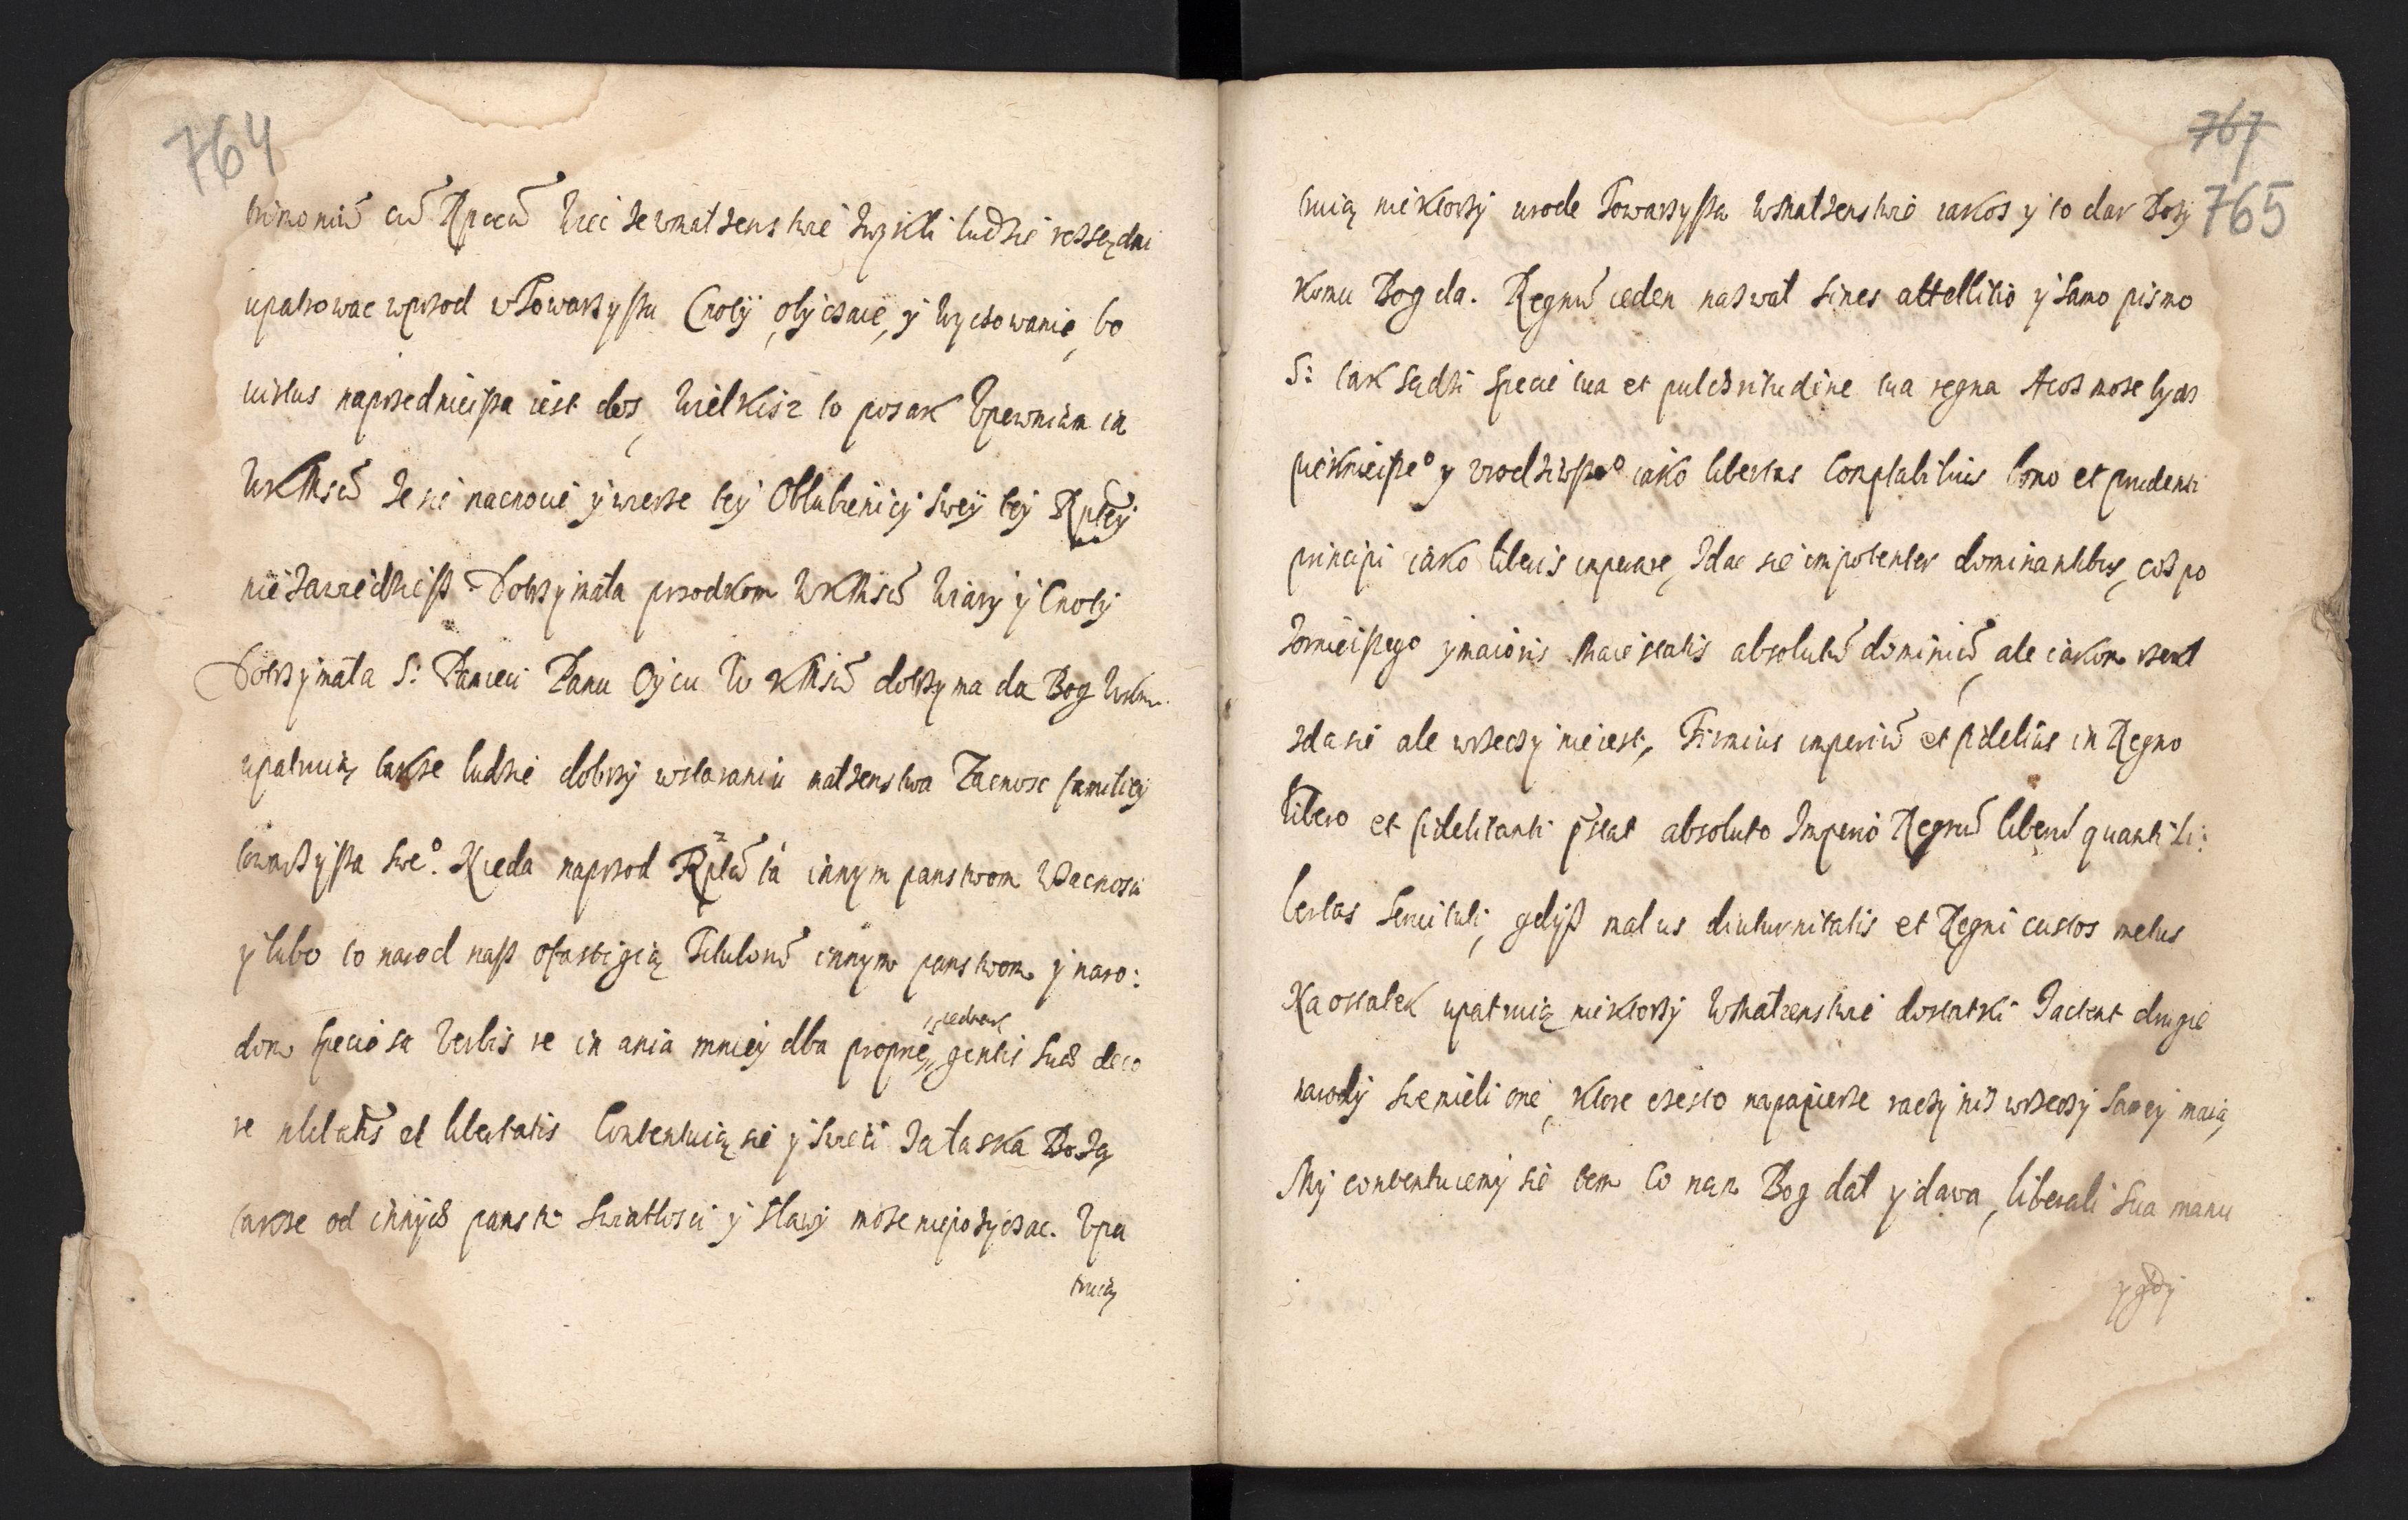 764
trimoniu cu Rpcea Więc że w małzenstwie zwykli ludzie rozsądni
upatrowac wprzod w Towarzyszu Cnoty, obyczaie, y wychowanie, bo
virtus naprzednieisza iest dos, Wielkisz to posak Upewniam ia
WKMsci że sie na cnocie y wierze tey Oblubienicy swey tey Rptey
nie zawiedziesz Dotrzymała przodkom WKMsci Wiary y Cnoty
Dotrzymała S: Pamieci Panu Oycu W KMsci dotrzyma da Bog WKM.
upatruią takze ludzie dobrzy w staraniu małzenstwa Zacnosc familiey
towarzysza sweo. Nieda naprzod Rpta ta innym panstwom W zacnosci
y lubo to narod nasz o fastigią Titulorum innym panstwom y naro:
dom speciosa Verbis re in ania mniey dba propriae iednak gentis suae deco
re nlitatis et libertatis Contentuią sie y swieci za łaską Bożą
takze od innych panstw swiatłosci y sławy może niepożyczac. Upa
truią
767
765
truią niektorzy urode Towarzysza W Małzenstwie iakos y to dar Bozy
komu Bog da. Regnu ieden nazwał sines attellitio y samo pismo
S: tak sądzi specie tua et pulchritudine tua regna A cosz może bydz
pieknieiszeo y urodziwszeo iako libertas Comptabilius bono et prudenti
principi iako liberis imperare, Zdac sie impotenter dominantibus, cosz po
zornieiszego y maioris Maiestatis absolutu dominiu, ale iakom rzekł
zda sie ale w rzeczy nieiest, Firmius imperiu et fidelius in Regno
libero et fidelitanti pstat absoluto Imperio Regnu liberu quanti Li:
bertas Servituti, gdysz malus diuturnitatis et Regni custos metus
Na ostatek upatruią niektorzy W Małzenstwie dostatki Iactent drugie
narody swemieli one, ktore czesto na papierze raczy nisz w rzeczy samey maią
My contentuiemy sie tem Co nam Bog dał y dawa, liberali sua manu
y gdy